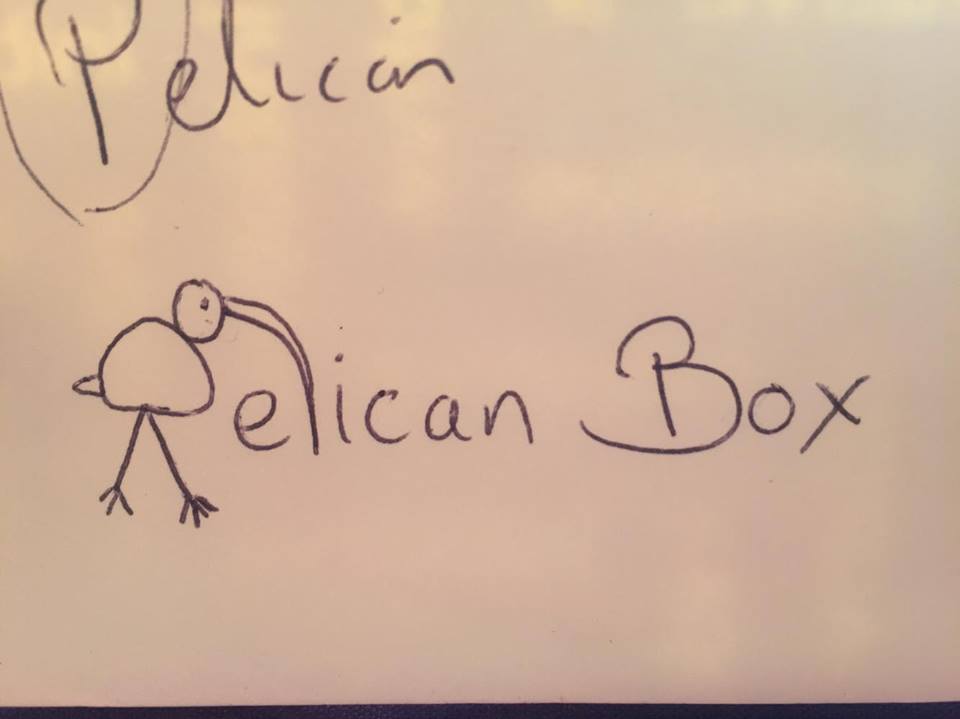 Pelican
Pelican Box